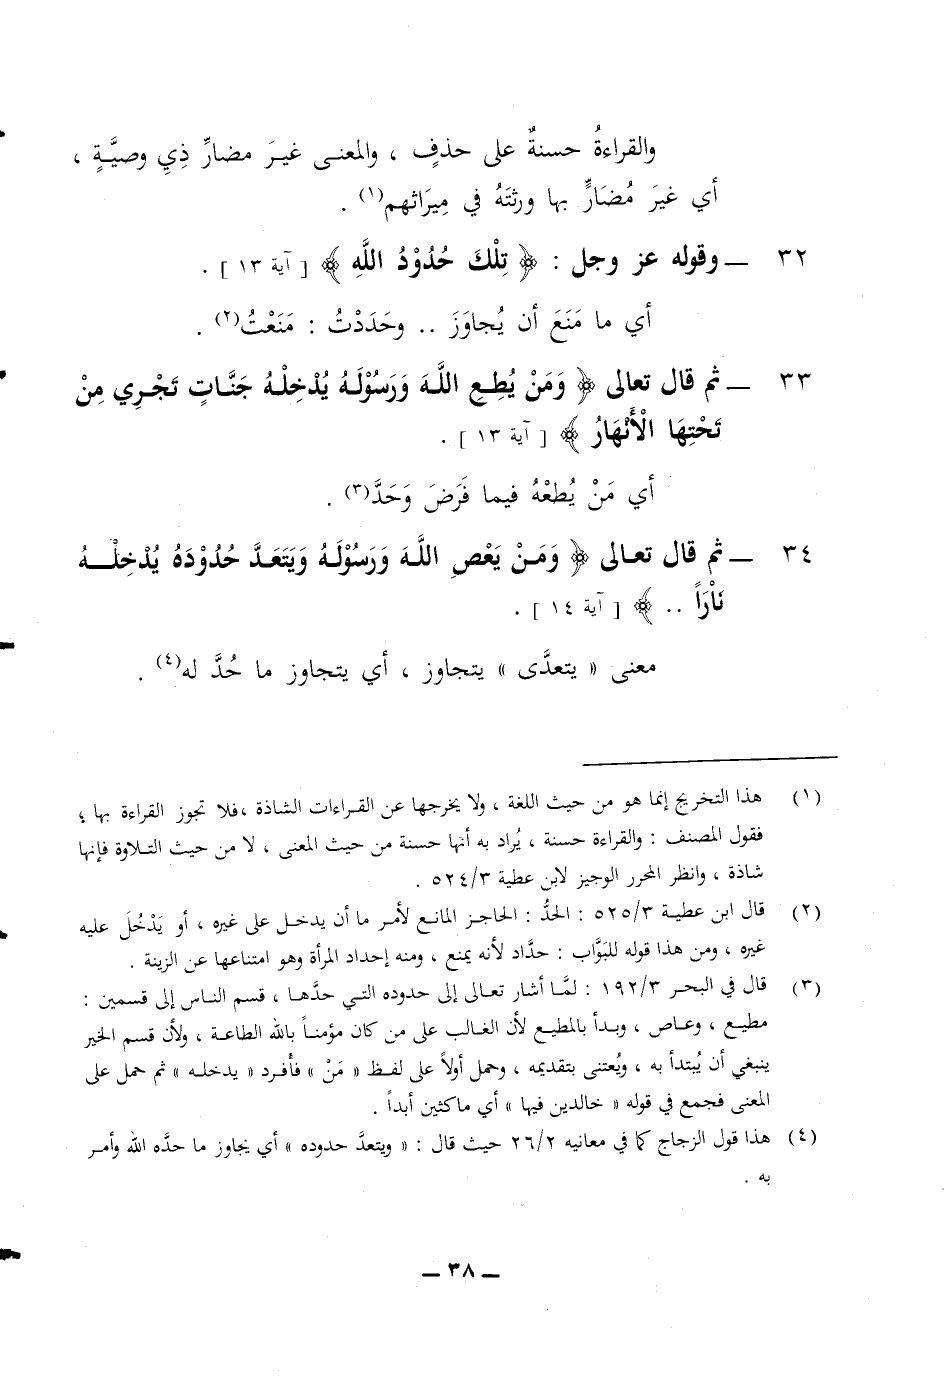 والقراءةُ حسنةٌ على حذفٍ ، والمعنى غيرَ مضارٍّ ذِي وصيَّةٍ ،
أي غيرَ مُضَارٍّ بها ورثتَهُ في مِيرَاثهم(١) .
٣٢ ــ وقوله عز وجل : ﴿ تِلْكَ حُدُوْدُ اللَّهِ ﴾ [ آية ١٣ ] .
أي ما مَنَعَ أن يُجاوَزَ .. وحَدَدْتُ : مَنَعْتُ(٢) .
٣٣ ــ ثم قال تعالى ﴿ وَمَنْ يُطِعِ اللَّهَ وَرَسُوْلَهُ يُدْخِلْهُ جَنَّاتٍ تَجْرِي مِنْ
تَحْتِهَا الْأَنْهَارُ ﴾ [ آية ١٣ ] .
أي مَنْ يُطعْهُ فيما فَرَضَ وَحَدَّ(٣) .
٣٤ ــ ثم قال تعالى ﴿ وَمَنْ يَعْصِ اللَّهَ وَرَسُوْلَهُ وَيَتَعَدَّ حُدُوْدَهُ يُدْخِلْهُ
نَاْرَاً .. ﴾ [ آية ١٤ ] .
معنى « يتعدَّى » يتجاوز ، أي يتجاوز ما حُدَّ له(٤) .
(١) هذا التخريج إنما هو من حيث اللغة ، ولا يخرجها عن القراءات الشاذة ،فلا تجوز القراءة بها ؛
فقول المصنف : والقراءة حسنة ، يُراد به أنها حسنة من حيث المعنى ، لا من حيث التلاوة فإنها
شاذة ، وانظر المحرر الوجيز لابن عطية ٥٢٤/٣ .
(٢) قال ابن عطية ٥٢٥/٣ : الحدُّ : الحاجز المانع لأمر ما أن يدخل على غيره ، أو يَدْخُلَ عليه
غيره ، ومن هذا قوله للبَوَّاب : حدَّاد لأنه يمنع ، ومنه إحداد المرأة وهو امتناعها عن الزينة .
(٣) قال في البحر ١٩٢/٣ : لمَّا أشار تعالى إلى حدوده التي حدَّها ، قسم الناس إلى قسمين :
مطيع ، وعاص ، وبدأ بالمطيع لأن الغالب على من كان مؤمناً بالله الطاعة ، ولأن قسم الخير
ينبغي أن يُبتدأ به ، ويُعتنى بتقديمه ، وحمل أولاً على لفظ « مَنْ » فأفرد « يدخله » ثم حمل على
المعنى فجمع في قوله « خالدين فيها » أي ماكثين أبداً .
(٤) هذا قول الزجاج كما في معانيه ٢٦/٢ حيث قال : « ويتعدَّ حدوده » أي يجاوز ما حدَّه الله وأمر
به .
ــ ٣٨ ــ